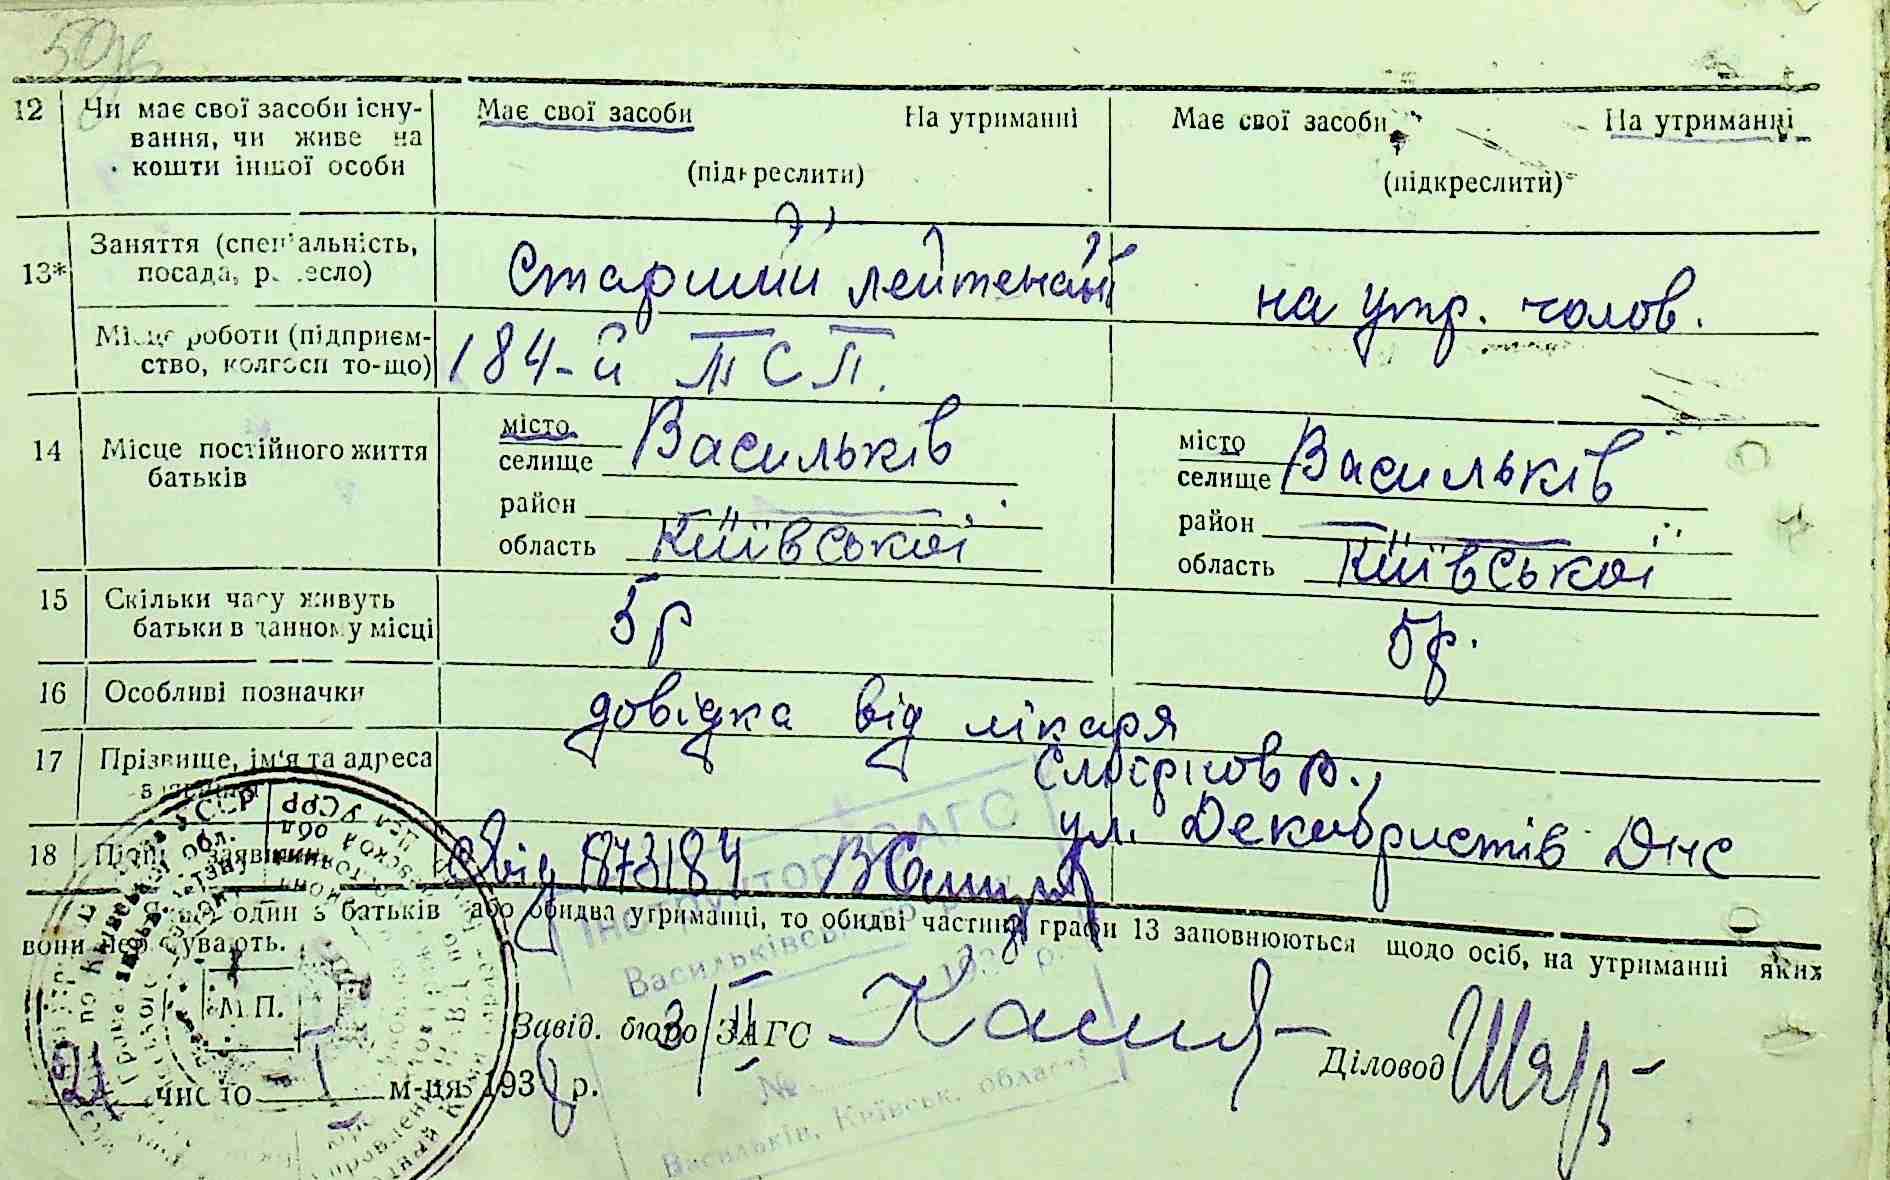 50
12 Чи має свої засоби існу- Має свої засоби На утриманні Має свої засоби На утриманні
вання, чи живе на
кошти іншої особи (підкреслити) (підкреслити)
Заняття (спеціальність, Старший лейтенант на утр. чолов.
13* посада, ремесло)
Місце роботи (підприєм- 184-й ТСП.
ство, колгосп то-що)
14 Місце постійного життя місто Васильків місто Васильків
батьків селище селище
район район
область Київської область Київської
15 Скільки часу живуть 5 р 5 р.
батьки в данному місці
16 Особливі позначки довідка від лікаря
17 Прізвище, ім'я та адреса
ул. Декабристів ДНС
18 Підпис заявника 873184
один з батьків або обидва утриманці, то обидві частини графи 13 заповнюються щодо осіб, на утриманні яких
вони перебувають.
Інструктор ЗАГС
М.П.
Завід. бюро ЗАГС
3/II
Діловод
21 число м-ця 193 р.
№
Васильків, Київськ. області